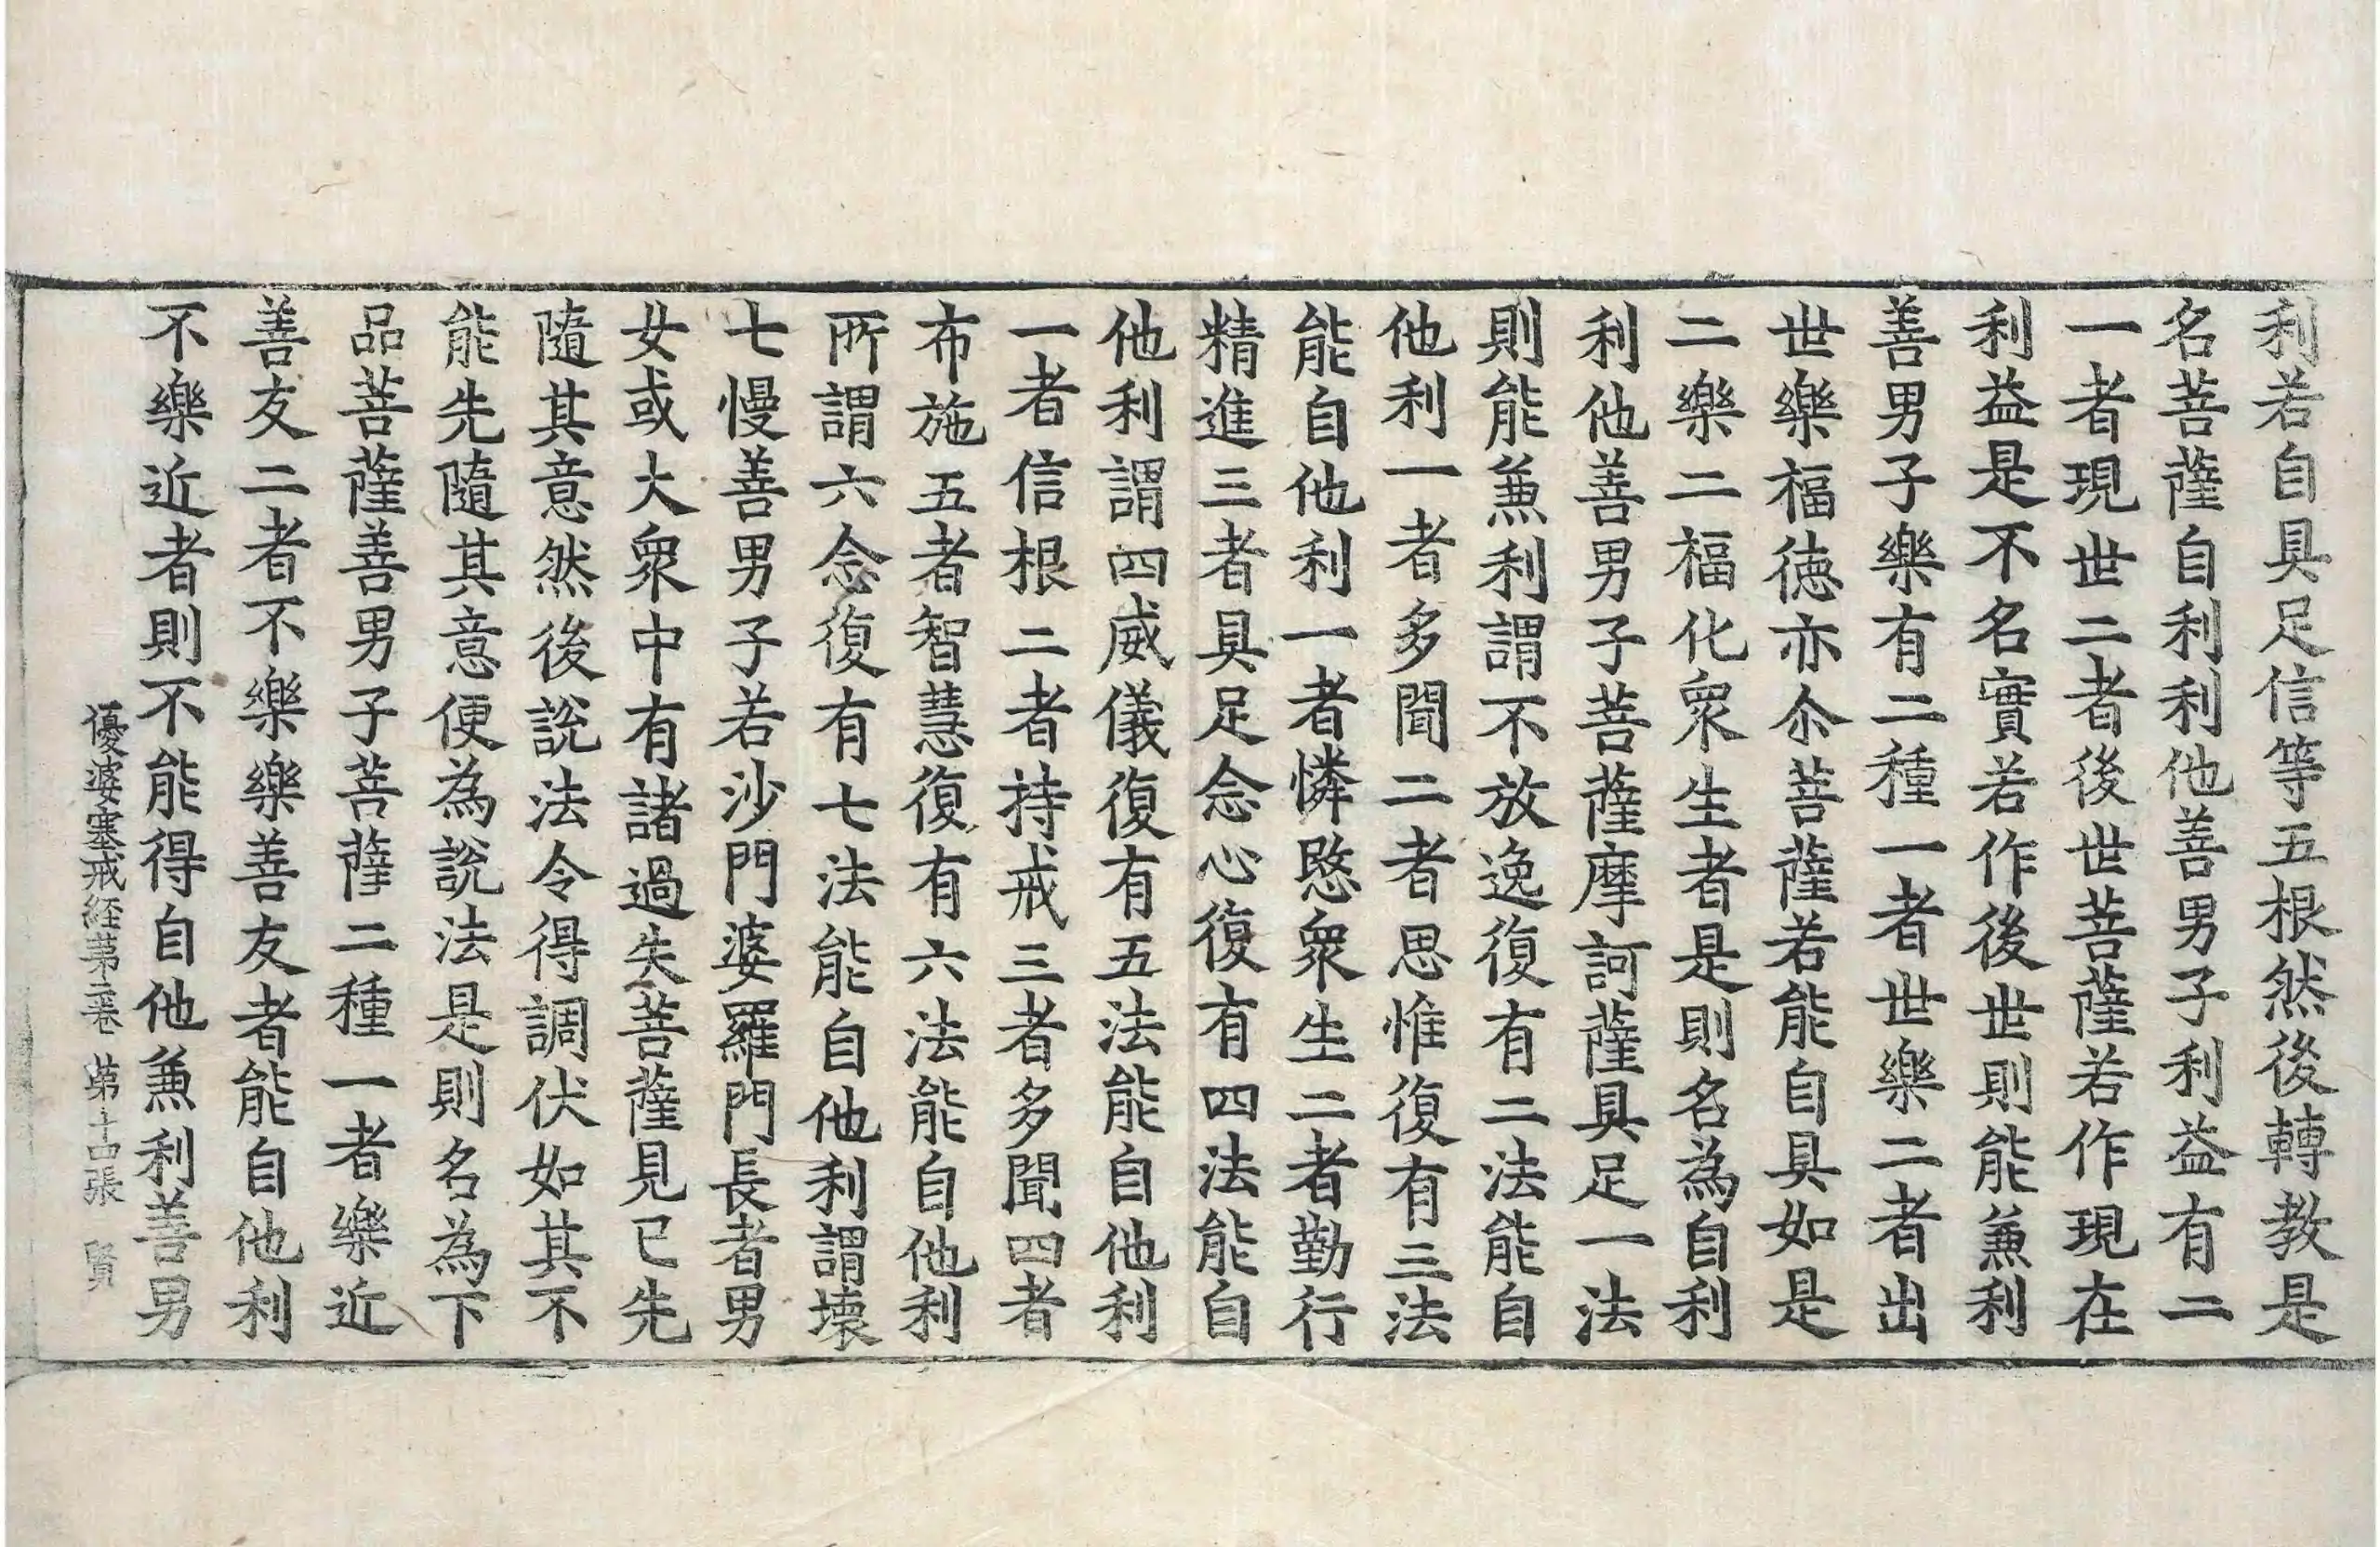 利若自具足信等五根然後轉教是
名菩薩自利利他善男子利益有二
一者現世二者後世菩薩若作現在
利益是不名實若作後世則能兼利
善男子樂有二種一者世樂二者出
世樂福徳亦尒菩薩若能自具如是
二樂二福化衆生者是則名為自利
利他善男子菩薩摩訶薩具足一法
則能兼利謂不放逸復有二法能自
他利一者多聞二者思惟復有三法
能自他利一者憐愍衆生二者勤行
精進三者具足念心復有四法能自
他利謂四威儀復有五法能自他利
一者信根二者持戒三者多聞四者
布施五者智慧復有六法能自他利
所謂六念復有七法能自他利謂壞
七慢善男子若沙門婆羅門長者男
女或大衆中有諸過失菩薩見已先
隨其意然後說法令得調伏如其不
能先隨其意便為說法是則名為下
品菩薩善男子菩薩二種一者樂近
善友二者不樂樂善友者能自他利
不樂近者則不能得自他兼利善男
優婆塞戒経苐二卷 苐十四張 賢